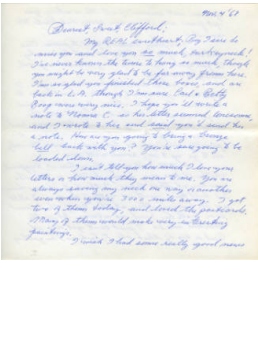 Nov. 4 '68
Dearest, Sweet Clifford:
My REAL sweetheart, Boy I sure do
miss you and love you so much, sweetheart!
I've never known the time to being so much, though
you might be very glad to be far away from here.
I'm so glad you finished there, and are
back in L.A. though I'm sure Carl & Betty
were very nice. I hope you'll write a
note to Norma C. as her letter seemed
and I wrote to her and asked you to send her
a note. How are you going to bring a
back with you? You're sure going to be
loaded down.
I can't tell you how much I love your
letters or how much they mean to me. You are
always saving my neck one way or another
even when you're 3000 miles away. I got
two of them today, and loved the postcards.
Many of them would make very interesting
paintings.
I wish I had some really good news